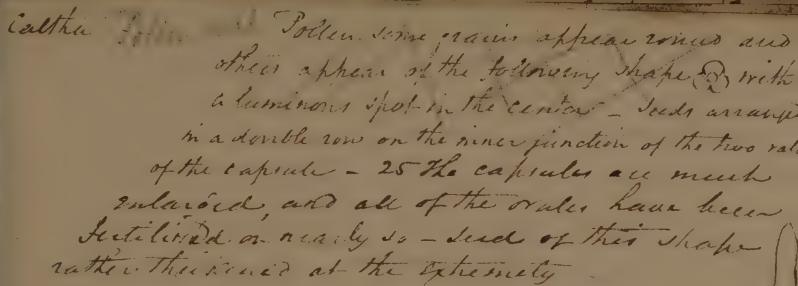 Caltha Pollen some grains appear round and
others appear of the following shape with
a luminous spot in the center – Seeds arrange
in a double row on the inner junction of the two val
of the capsule – 25 The capsules are much
enlarged, and all of the ovules have been
fertilized or nearly so – seed of this shape
rather thickened at the extremety